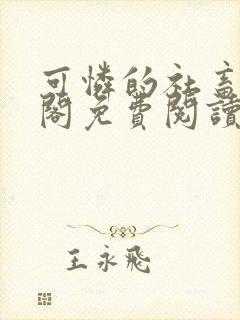 可憐的社畜
閣免費閱讀
王永飛